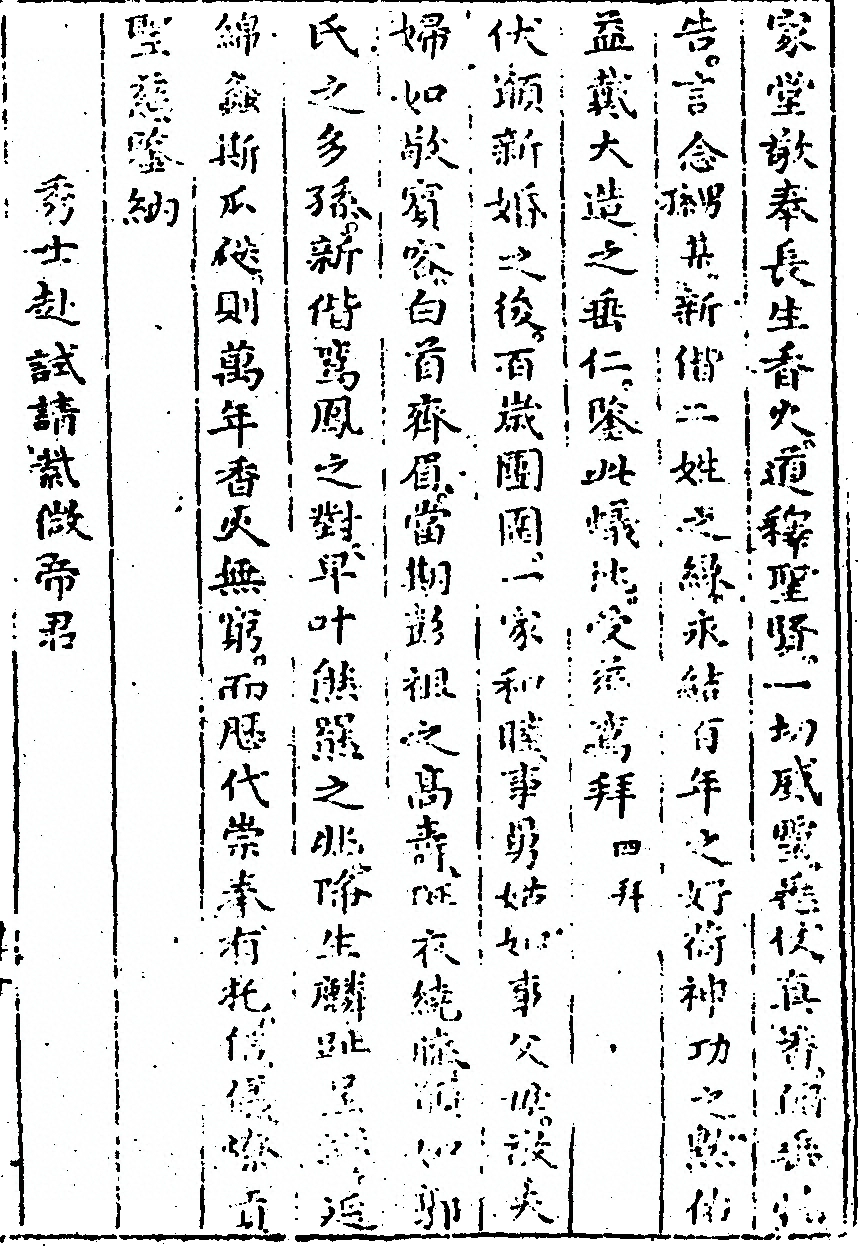 家堂敬奉長生香火。道釋聖賢。一切威靈。
告。言念某。新偕二姓之緣。永結百年之好。荷神功之默佑
益戴大造之垂仁。鑒此蟻忱。受兹蔫拜 四拜
伏願新婚之後。百歲團圓。一家和睦。事舅姑如事父母。敬夫
婦如敬賓客。白首齊眉。當期彭祖之高壽。衣繞膝。如郭
氏之多孫。新偕鸞鳳之對。早叶熊羆之兆。降生麟趾呈祥。近
綿螽斯瓜瓞。則萬年香火無窮。而歷代崇奉有托。信儀喙貢
聖慈鑒納
秀士赴試請紫微帝君